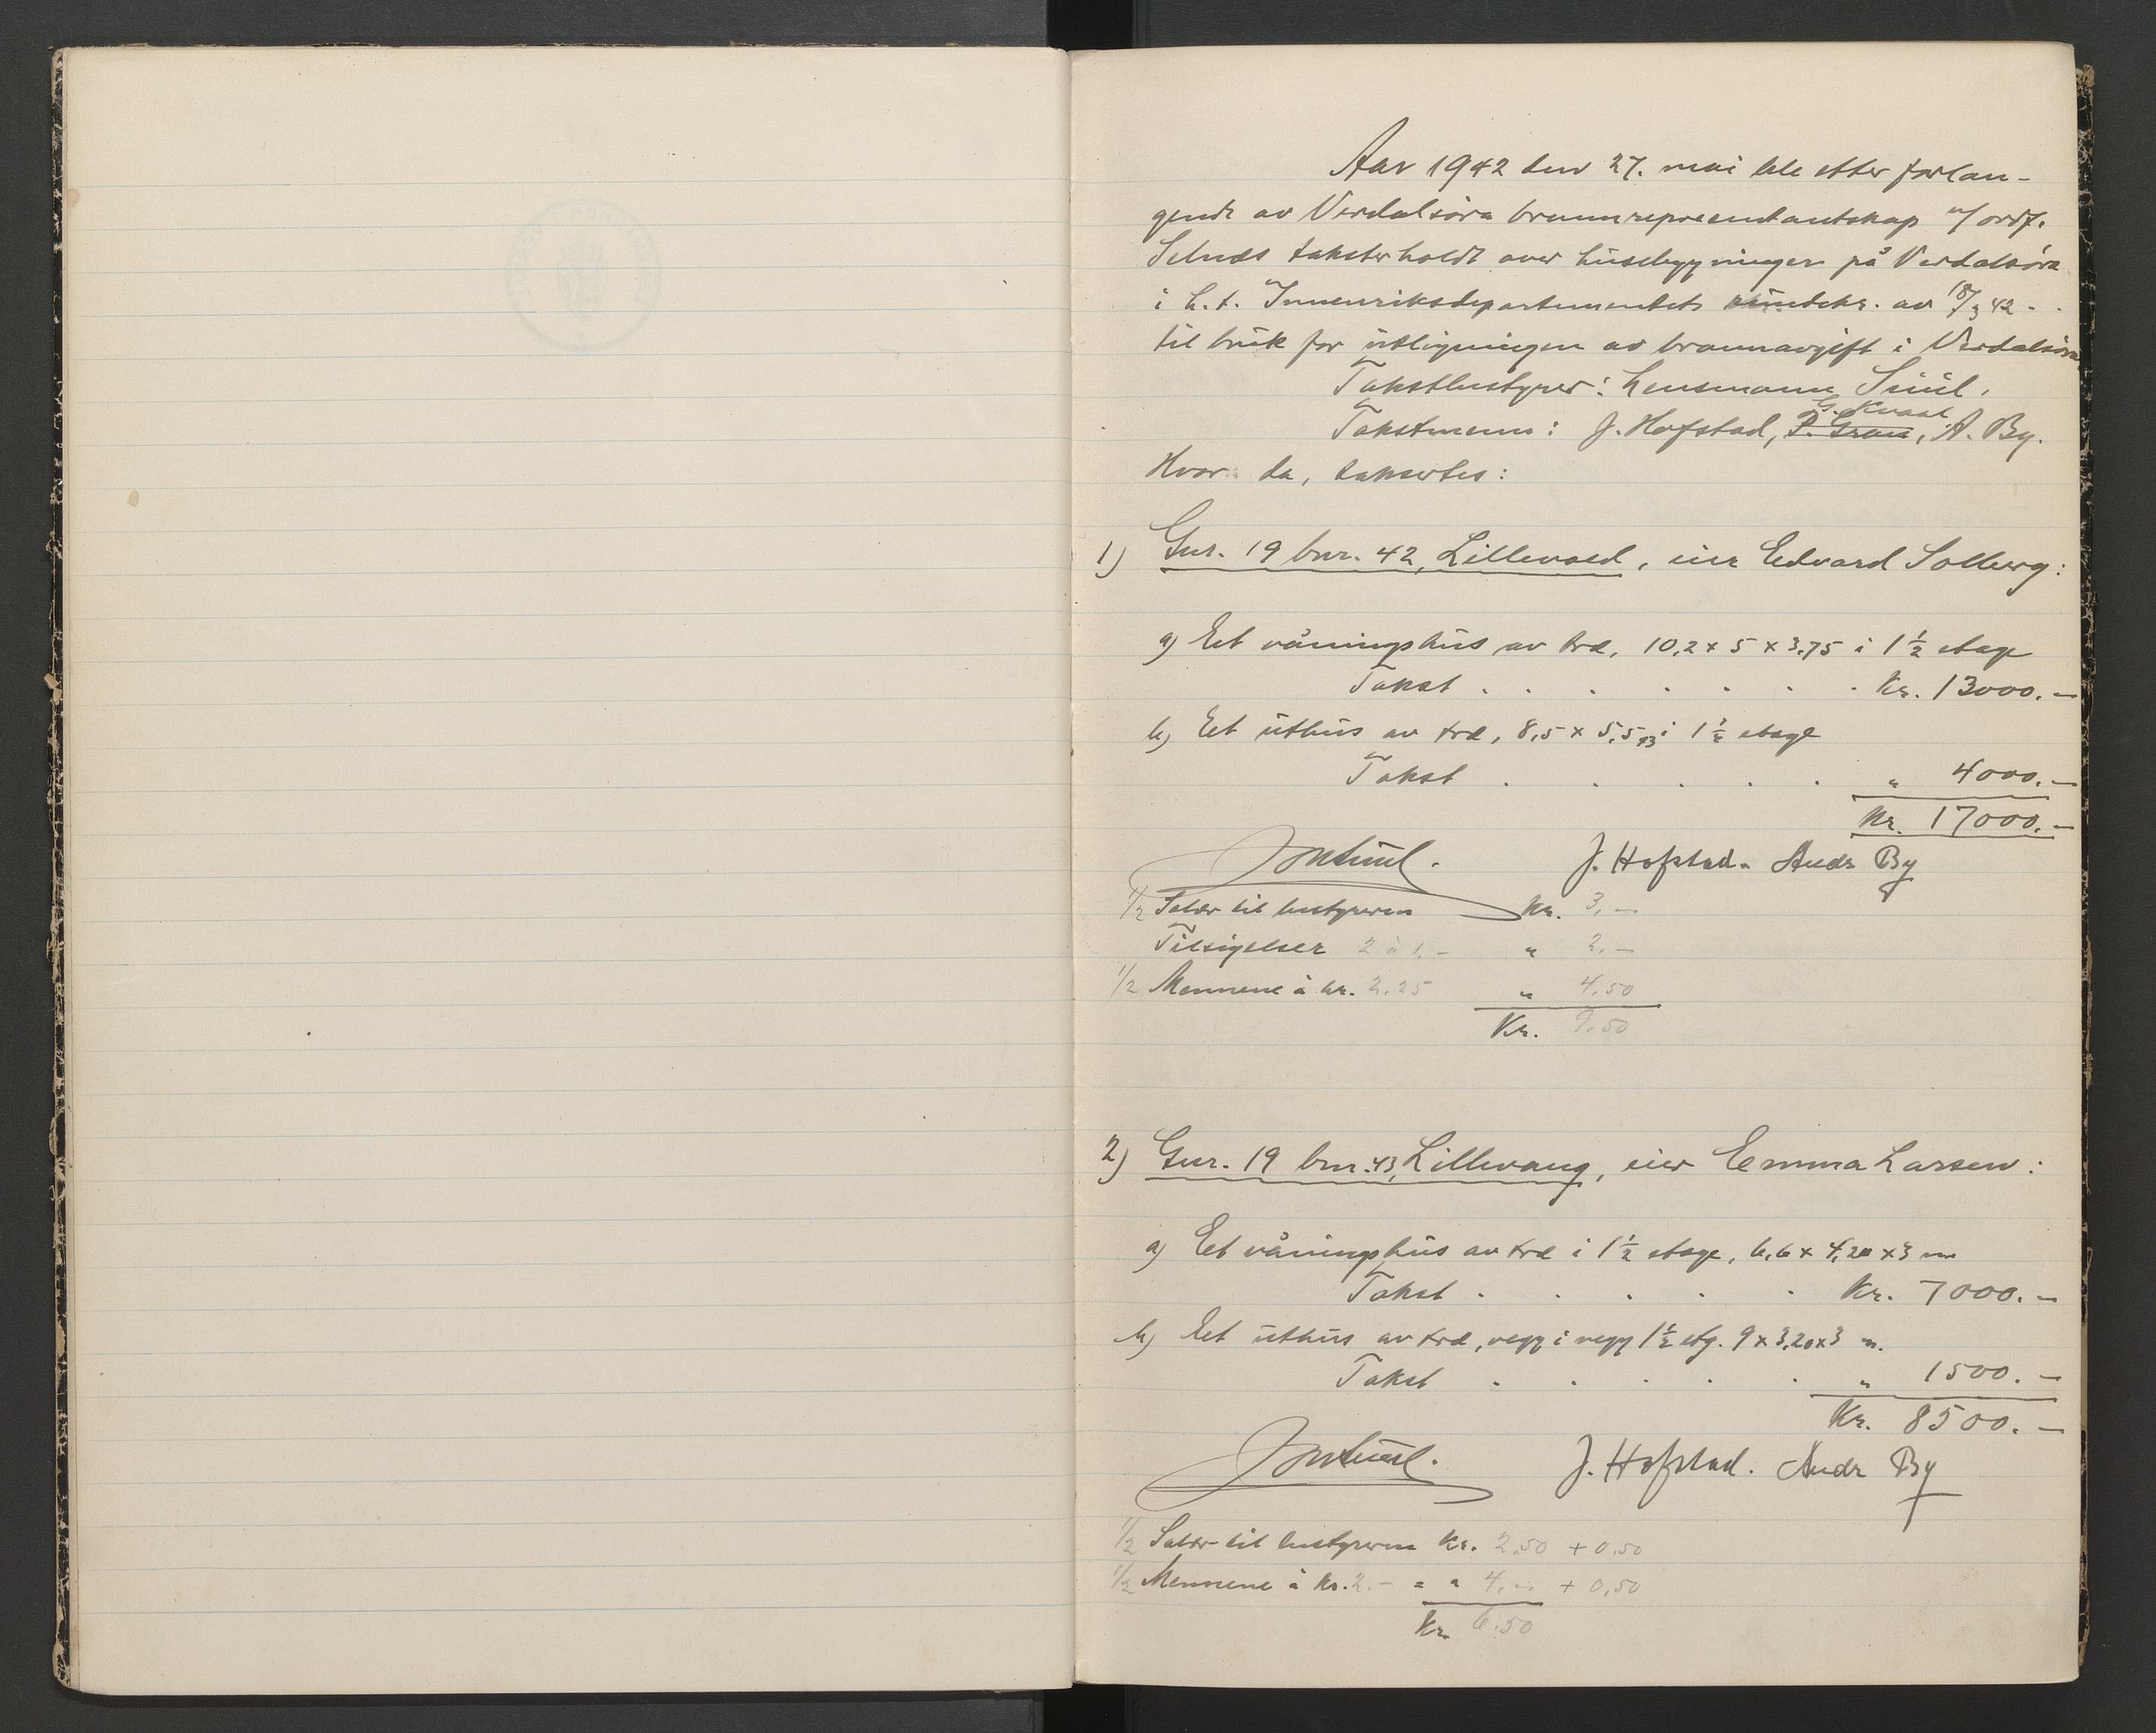 Aar 1942 den 27. mai ble etter forlan-
gende av Verdalsøra brannrepresentantskap v/ ordf.
Selnæs takster holdt over husebygningen på Verdalsøra
i h.t. Innenriksdepartementets rundskr. av 18/3 42 -
til bruk for utligningen av brannavgift i Verdalsøra
Takstbestyrer: Lensmann Suul.
G. Kvaal
Takstmenn: J. Hofstad, P. Gran, A. By.
Hvor da, taksertes:
1) Gnr. 19 bnr. 42, Lillevold, eier Edvard Solberg:
a) Et våningshus av træ, 10,2 x 5 x 3,75 i 1 1/2 etage
Takst . . . . . . . Kr. 13000.-
b) Et uthus av træ, 8,5 x 5,5 x3 i 1 1/2 etage
Takst . . . . . " 4000.-
Kr. 17000.-
J. Hofstad. Andr By
1/2 Salær til bestyreren Kr. 3,-
Tilsigelser 2 à 1.- " 2.-
1/2 Mennene à kr. 2,25 " 4,50
Kr. 9.50
2) Gnr. 19 bnr. 43, Lillevang, eier Emma Larsen:
a) Et våningshus av træ i 1 1/2 etage, 6,6 x 4,20 x 3 m
Takst . . . . . Kr. 7000.-
b) Et uthus av træ, vegg i vegg 1 1/2 etg. 9 x 3,20 x 3 m.
Takst . . . . . " 1500.-
Kr. 8500.-
J. Hofstad. Andr By
1/2 Salær til bestyreren Kr. 2,50 + 0,50
1/2 Mennene à kr. 2.- = " 4,- + 0,50
Kr 6.50